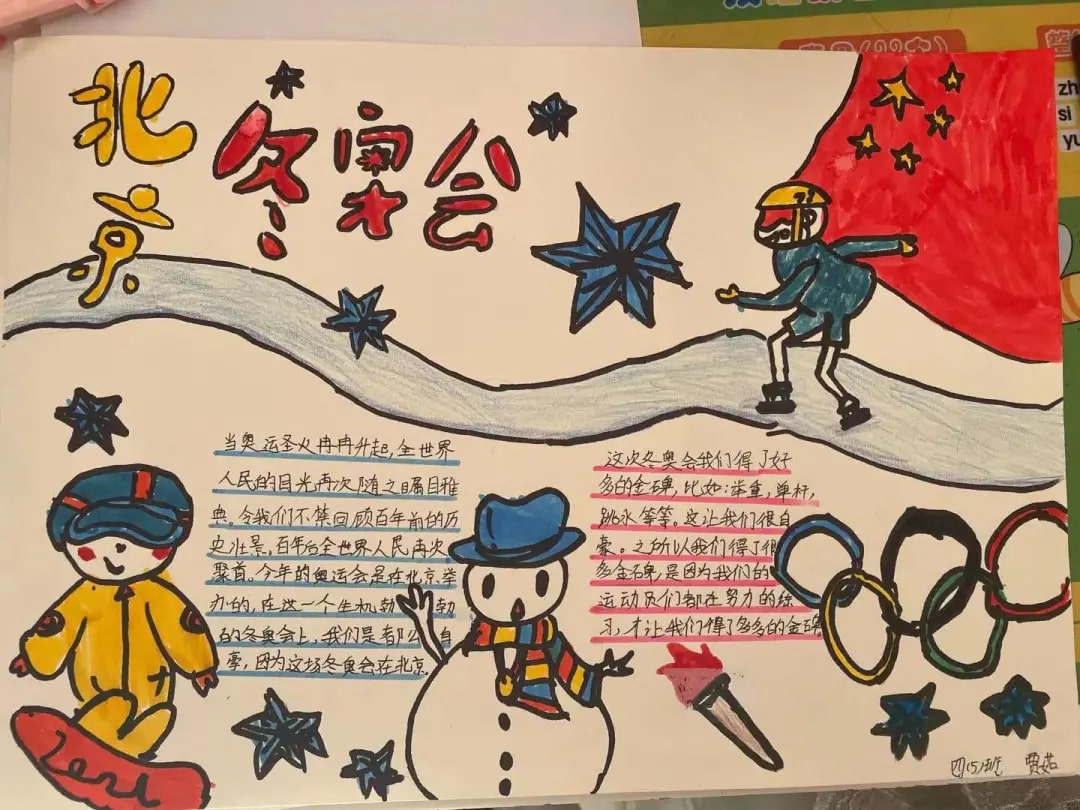 北京
冬奥会
当奥运圣火冉冉升起,全世界
人民的目光再次随之瞩目雅
典。令我们不禁回顾百年前的历
史壮景,百年后全世界人民再次
聚首。今年的奥运会是在北京举
办的,在这一个生机勃勃
的冬奥会上,我们是都么自
豪,因为这场冬奥会在北京.
这次冬奥会我们得了好
多的金牌,比如:举重,单杆,
跳水等等。这让我们很自
豪。之所以我们得了很
多金牌,是因为我们的
运动员们都在努力的练
习,才让我们得了多多的金牌
四(5)班 贾茹
zh
si
yu